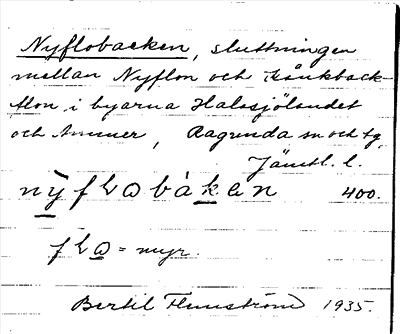 Nyflobacken, sluttningen
mellan Nyflon och Krånkback-
flon i byarna Halasjölandet
och Ammer, Ragunda sn och tg,
Jämtl. l.
nỳfɬωbàken 400.
fɬω = myr.
Bertil Flemström 1935.